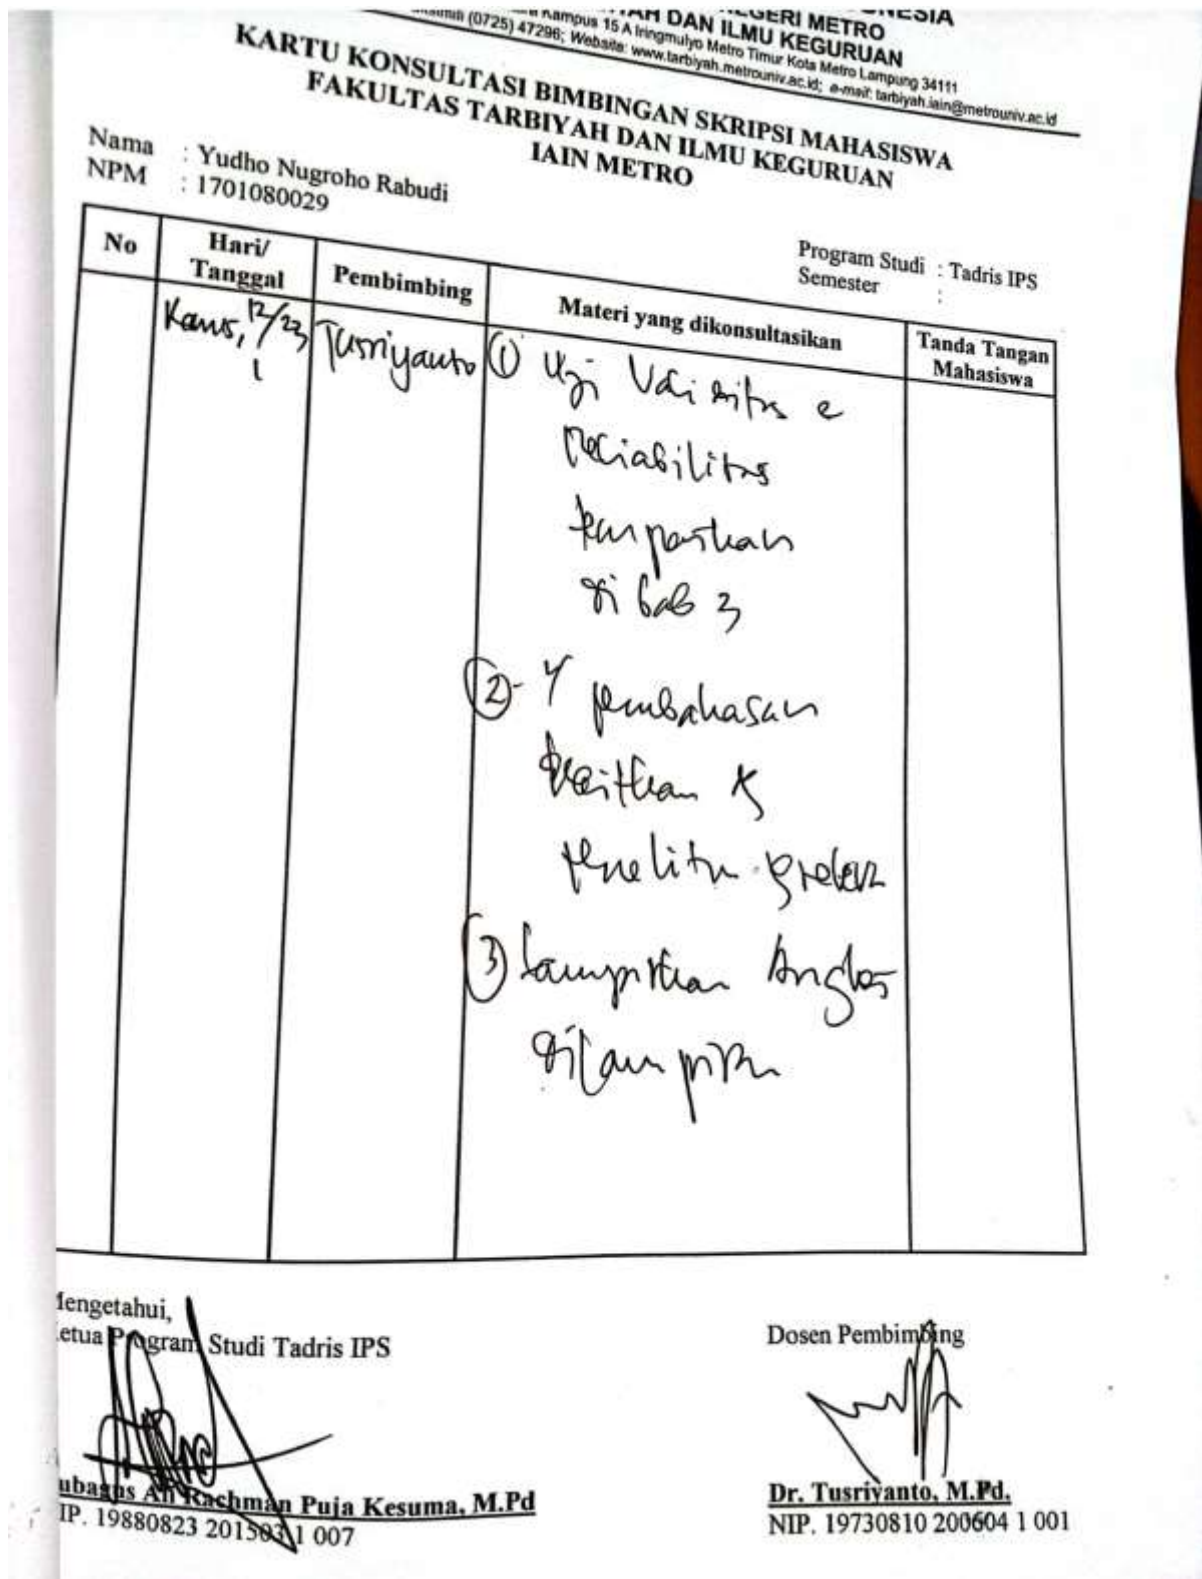 NEGERI METRO
DAN ILMU KEGURUAN
Kampus 15 A Iringmulyo Metro Timur Kota Metro Lampung 34111
(0725) 47296; Website: www.tarbiyah.metrouniv.ac.id; e-mail: tarbiyah.iain@metrouniv.ac.id
KARTU KONSULTASI BIMBINGAN SKRIPSI MAHASISWA
FAKULTAS TARBIYAH DAN ILMU KEGURUAN
IAIN METRO
Nama : Yudho Nugroho Rabudi
NPM : 1701080029
Program Studi : Tadris IPS
Semester :
No Hari/ Tanggal Pembimbing Materi yang dikonsultasikan Tanda Tangan Mahasiswa
Kamis, 12/23 Tusriyanto ① Uji Validitas &
1 Reliabilitas
di bab 3
②- pembahasan
kaitkan
③ Lampirkan Angket
dilampiran
Mengetahui,
Ketua Program Studi Tadris IPS
Dosen Pembimbing
ubagus Ali Rachman Puja Kesuma, M.Pd
IP. 19880823 201503 1 007
Dr. Tusriyanto, M.Pd.
NIP. 19730810 200604 1 001